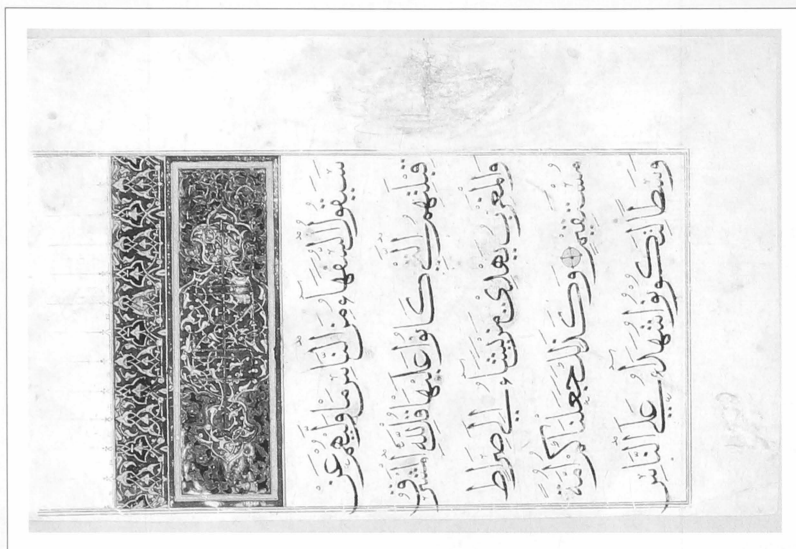 سَيَقُولُ السُّفَهَاءُ مِنَ النَّاسِ مَا وَلّٰیهُمْ عَنْ
قِبْلَتِهِمُ الَّتِي كَانُوا عَلَيْهَا قُلْ لِلّٰهِ الْمَشْرِقُ
وَالْمَغْرِبُ يَهْدِي مَنْ يَشَاءُ إِلَى صِرَاطٍ
مُسْتَقِيمٍ وَكَذٰلِكَ جَعَلْنَاكُمْ أُمَّةً
وَسَطًا لِتَكُونُوا شُهَدَاءَ عَلَى النَّاسِ